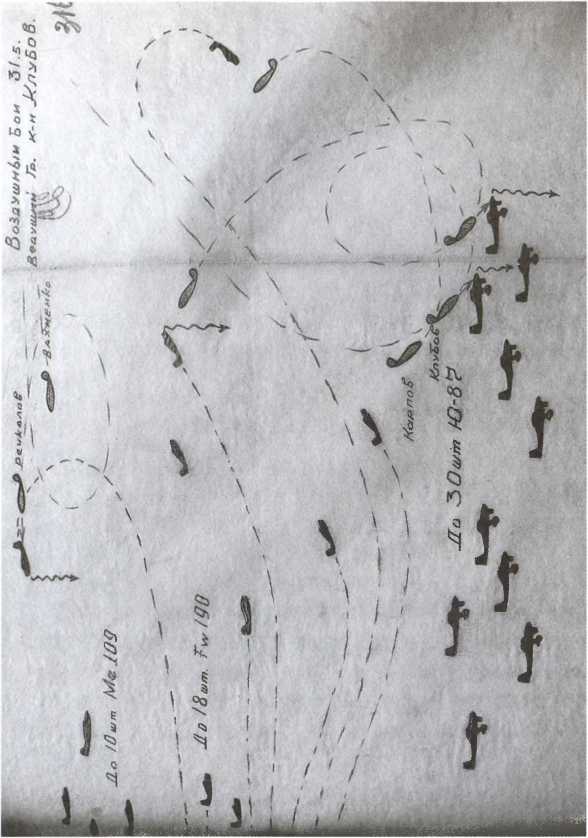 Воздушный бой 31.5.
Ведущий гр. к-н Клубов.
Вахненко
Речкалов
Карпов
Клубов
До 30 шт Ю-87
До 18 шт. Fw 190
До 10 шт Ме 109